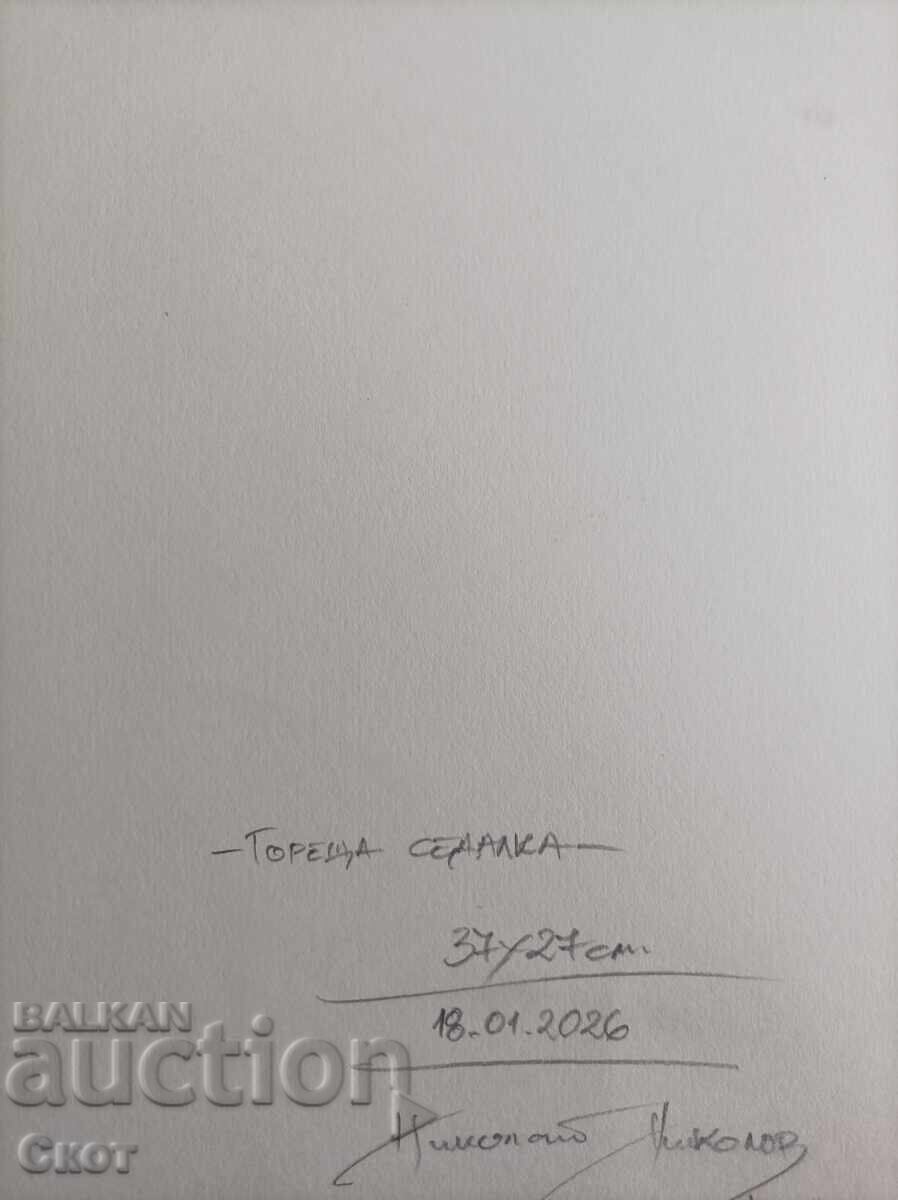 –ГОРЕЩА СЕДАЛКА–
37x27см.
18.01.2026
BALKAN
auction
Николай Николов
Скот